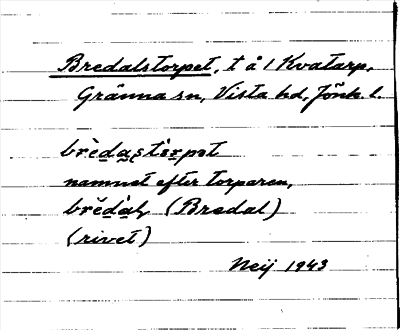 Bredalstorpet, t å 1 Kvatarp,
Gränna sn, Vista hd, Jönk l.
brèdas̜tòrpət
namnet efter torparen,
brĕdàɫ (Bredal)
(rivet)
Neij 1943